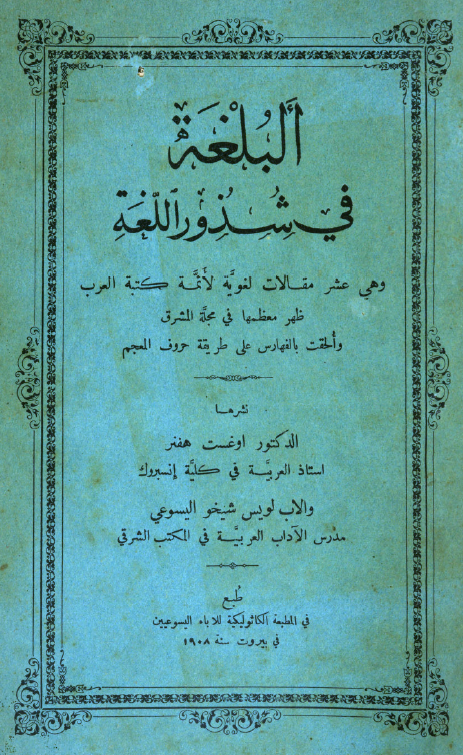 أَلبُلْغَة
في شُذُور اللّغَةِ
وهي عشر مقالات لغويَّة لأَئمَّة كتبة العرب
ظهر معظمها في مجلَّة المشرق
وأُلحقت بالفهارس على طريقة حروف المعجم
نشرها
الدكتور اوغست هفنر
استاذ العربيَّة في كليَّة إنسبروك
والاب لويس شيخو اليسوعي
مدرّس الآداب العربيَّة في المكتب الشرقي
طُبع
في المطبعة الكاثوليكية للاباء اليسوعيين
في بيروت سنة ١٩٠٨